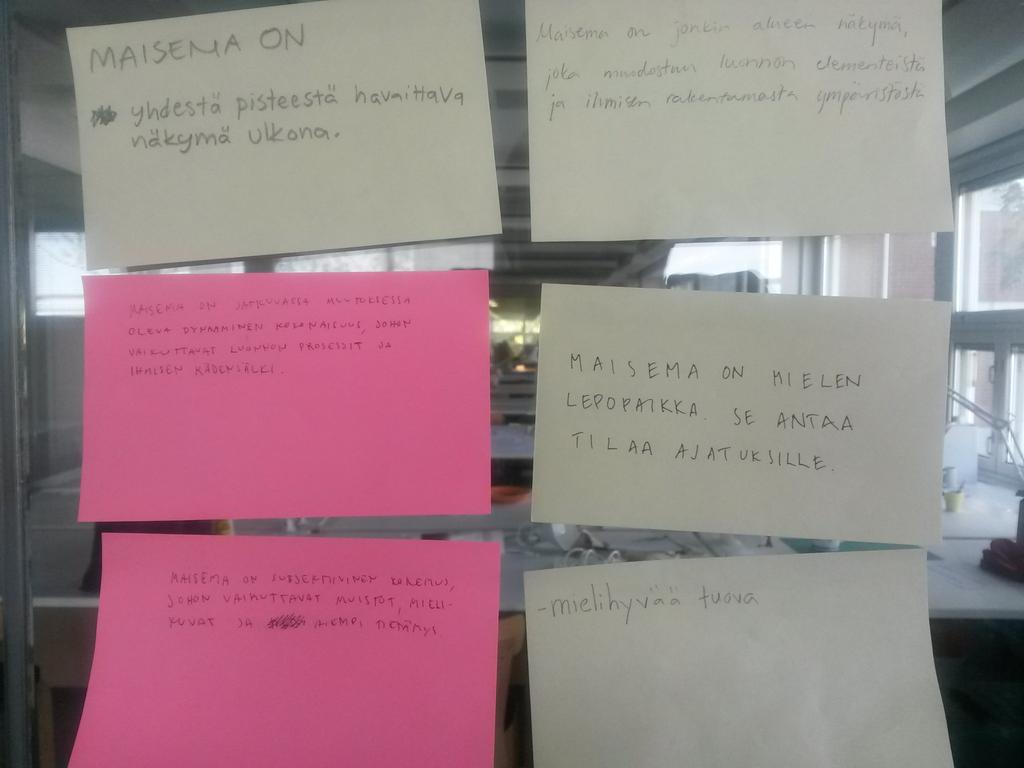 MAISEMA ON
yhdestä pisteestä havaittava
näkymä ulkona.
Maisema on jonkin alueen näkymä,
joka muodostuu luonnon elementeistä
ja ihmisen rakentamasta ympäristöstä
MAISEMA ON JATKUVASSA MUUTOKSESSA
OLEVA DYNAAMINEN KOKONAISUUS, JOHON
VAIKUTTAVAT LUONNON PROSESSIT JA
IHMISEN KÄDENJÄLKI.
MAISEMA ON MIELEN
LEPOPAIKKA. SE ANTAA
TILAA AJATUKSILLE.
MAISEMA ON SUBJEKTIIVINEN KOKEMUS,
JOHON VAIKUTTAVAT MUISTOT, MIELI-
KUVAT JA AIEMPI TIETÄMYS
-mielihyvää tuova